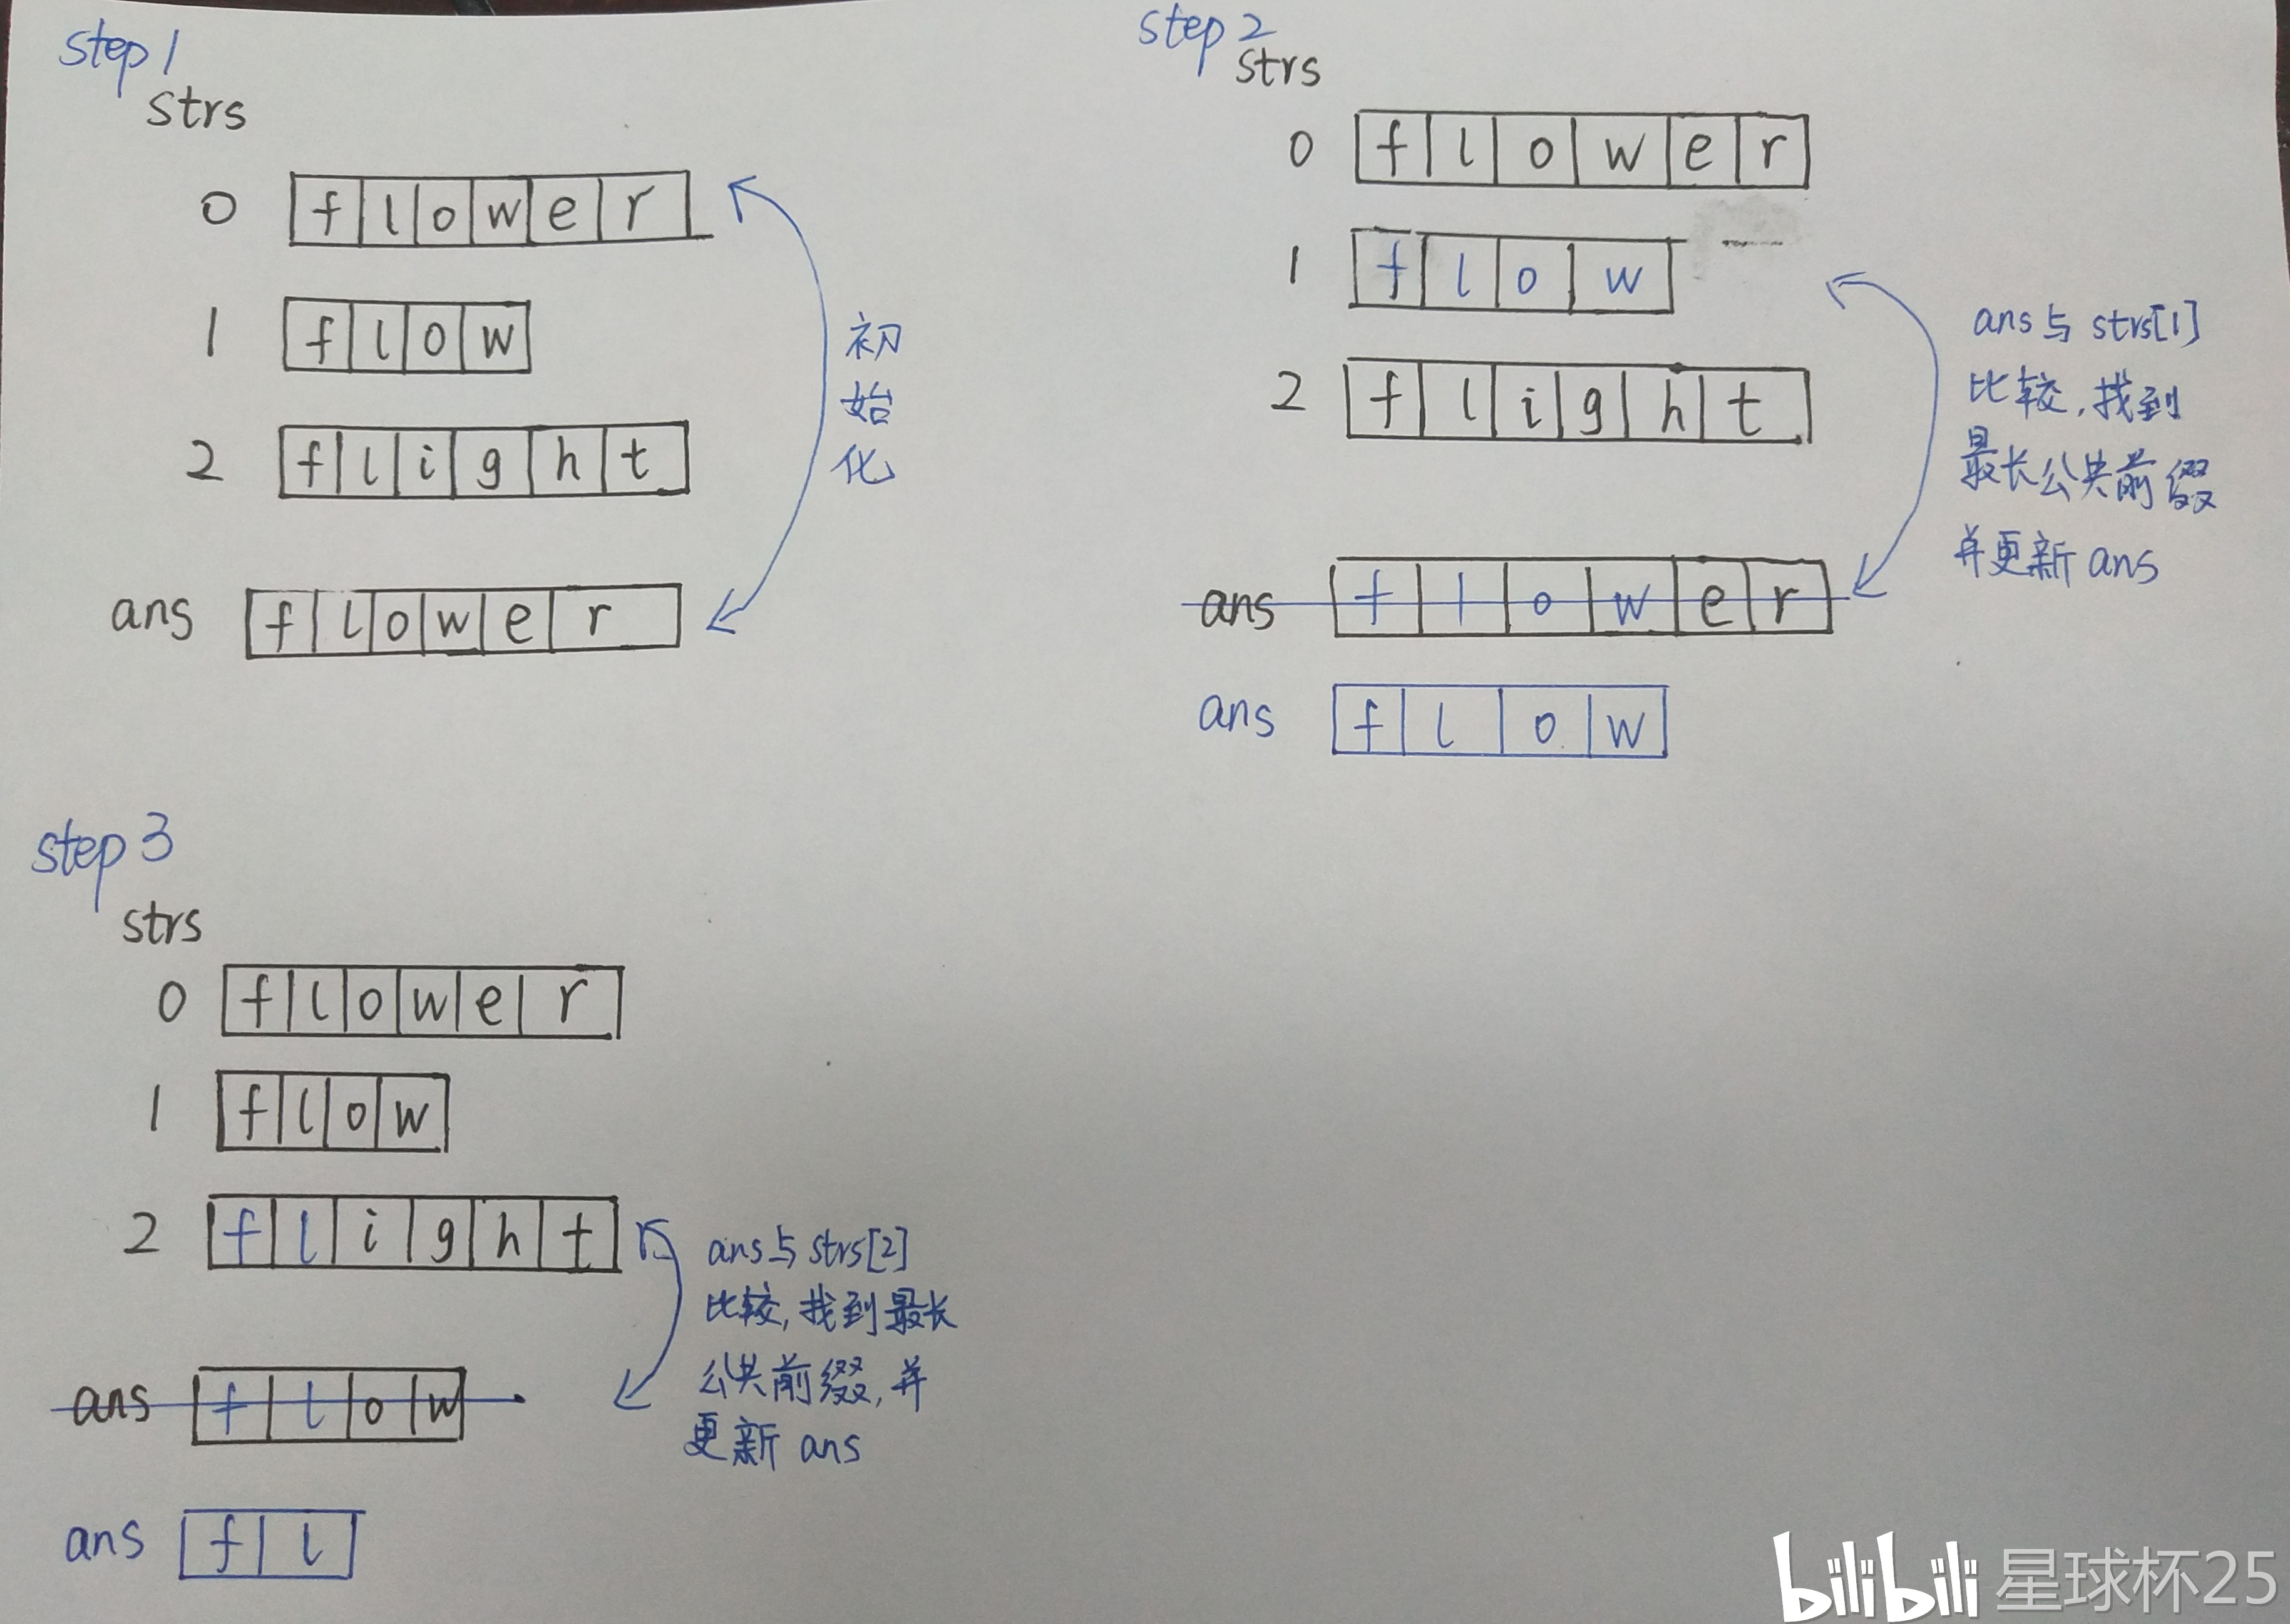 step 1
strs
0 f l o w e r
1 f l o w
2 f l i g h t
初
始
化
ans f l o w e r
step 2
strs
0 f l o w e r
1 f l o w
2 f l i g h t
ans与 strs[1]
比较,找到
最长公共前缀
并更新 ans
ans f l o w e r
ans f l o w
step 3
strs
0 f l o w e r
1 f l o w
2 f l i g h t
ans与 strs[2]
比较,找到最长
公共前缀,并
更新 ans
ans f l o w
ans f l
bilibili 星球杯25